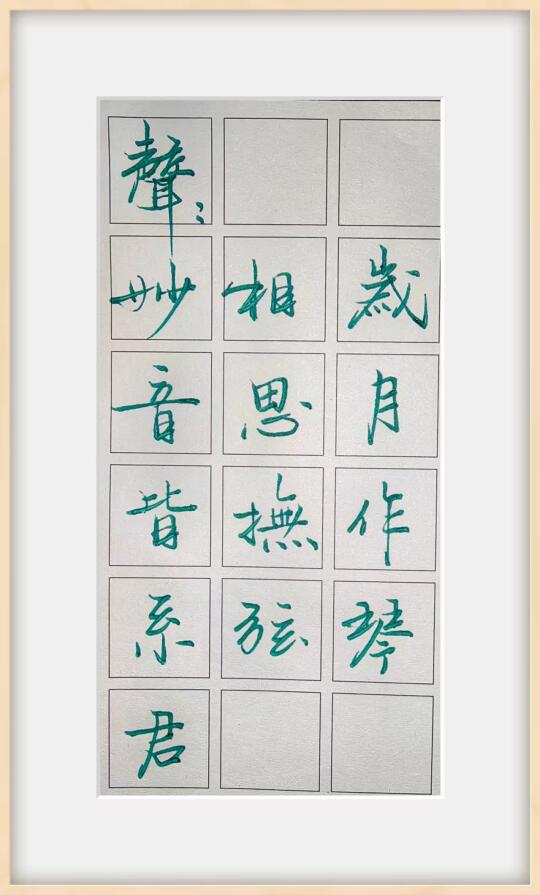 歲月作琴
相思撫弦
聲〻妙音皆系君